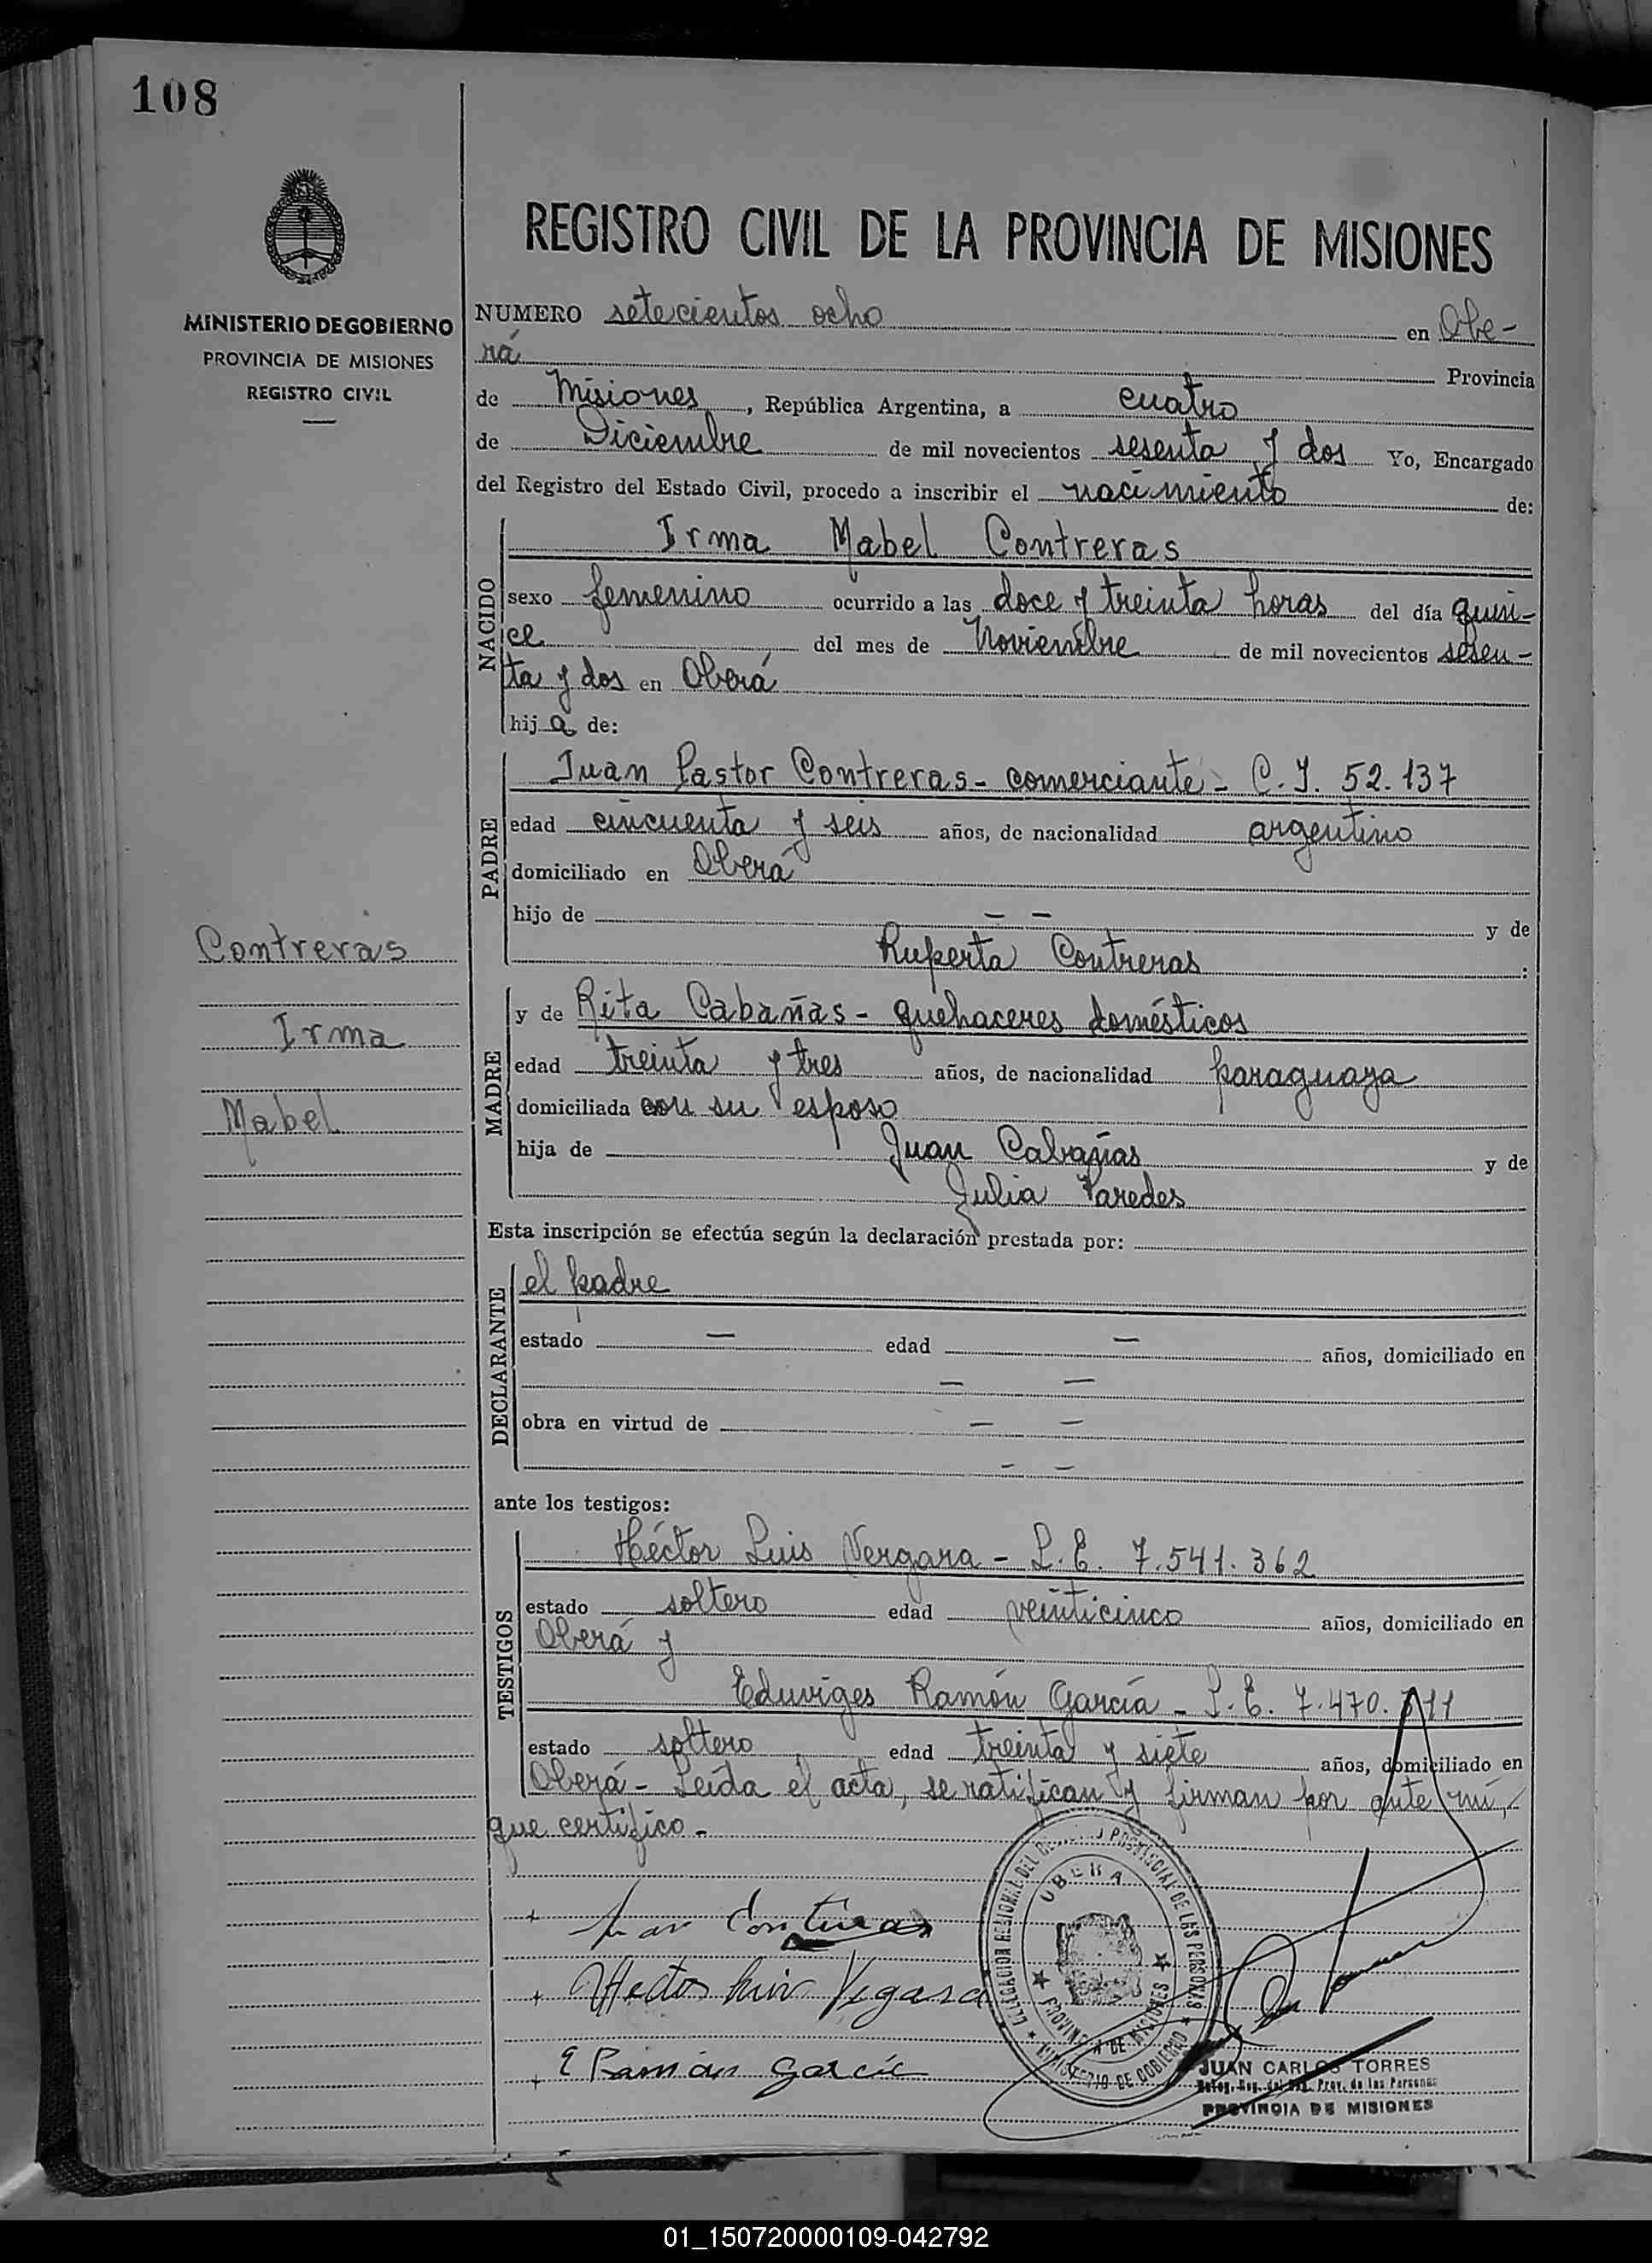 108
REGISTRO CIVIL DE LA PROVINCIA DE MISIONES
MINISTERIO DE GOBIERNO
PROVINCIA DE MISIONES
REGISTRO CIVIL
NUMERO setecientos ocho en Obe-
rá Provincia
de Misiones, República Argentina, a cuatro
de Diciembre de mil novecientos sesenta y dos Yo, Encargado
del Registro del Estado Civil, procedo a inscribir el nacimiento de:
NACIDO
Irma Mabel Contreras
sexo femenino ocurrido a las doce y treinta horas del día quin-
ce del mes de Noviembre de mil novecientos sesen-
ta y dos en Oberá
hija de:
PADRE
Juan Pastor Contreras - comerciante - C.I. 52.137
edad cincuenta y seis años, de nacionalidad argentino
domiciliado en Oberá
hijo de — — y de
Ruperta Contreras :
Contreras
Irma
Mabel
MADRE
y de Rita Cabañas - quehaceres domésticos
edad treinta y tres años, de nacionalidad paraguaya
domiciliada con su esposo
hija de Juan Cabañas y de
Julia Paredes
Esta inscripción se efectúa según la declaración prestada por:
DECLARANTE
el padre
estado — edad — años, domiciliado en
— —
obra en virtud de — —
— —
ante los testigos:
TESTIGOS
Héctor Luis Vergara - L.E. 7.541.362
estado soltero edad veinticinco años, domiciliado en
Oberá y
Eduviges Ramón García - L.E. 7.470.
estado soltero edad treinta y siete años, domiciliado en
Oberá - Leída el acta, se ratifican y firman por ante mí,
que certifico.-
+ Contreras
+ Hector Luis Vegara
+ E Ramón García
DELEGACION REGIONAL DEL PROVINCIAL DE LAS PERSONAS
OBERA
PROVINCIA DE MISIONES
MINISTERIO DE GOBIERNO
JUAN CARLOS TORRES
Deleg. Reg. del Reg. Prov. de las Personas
PROVINCIA DE MISIONES
01_150720000109-042792